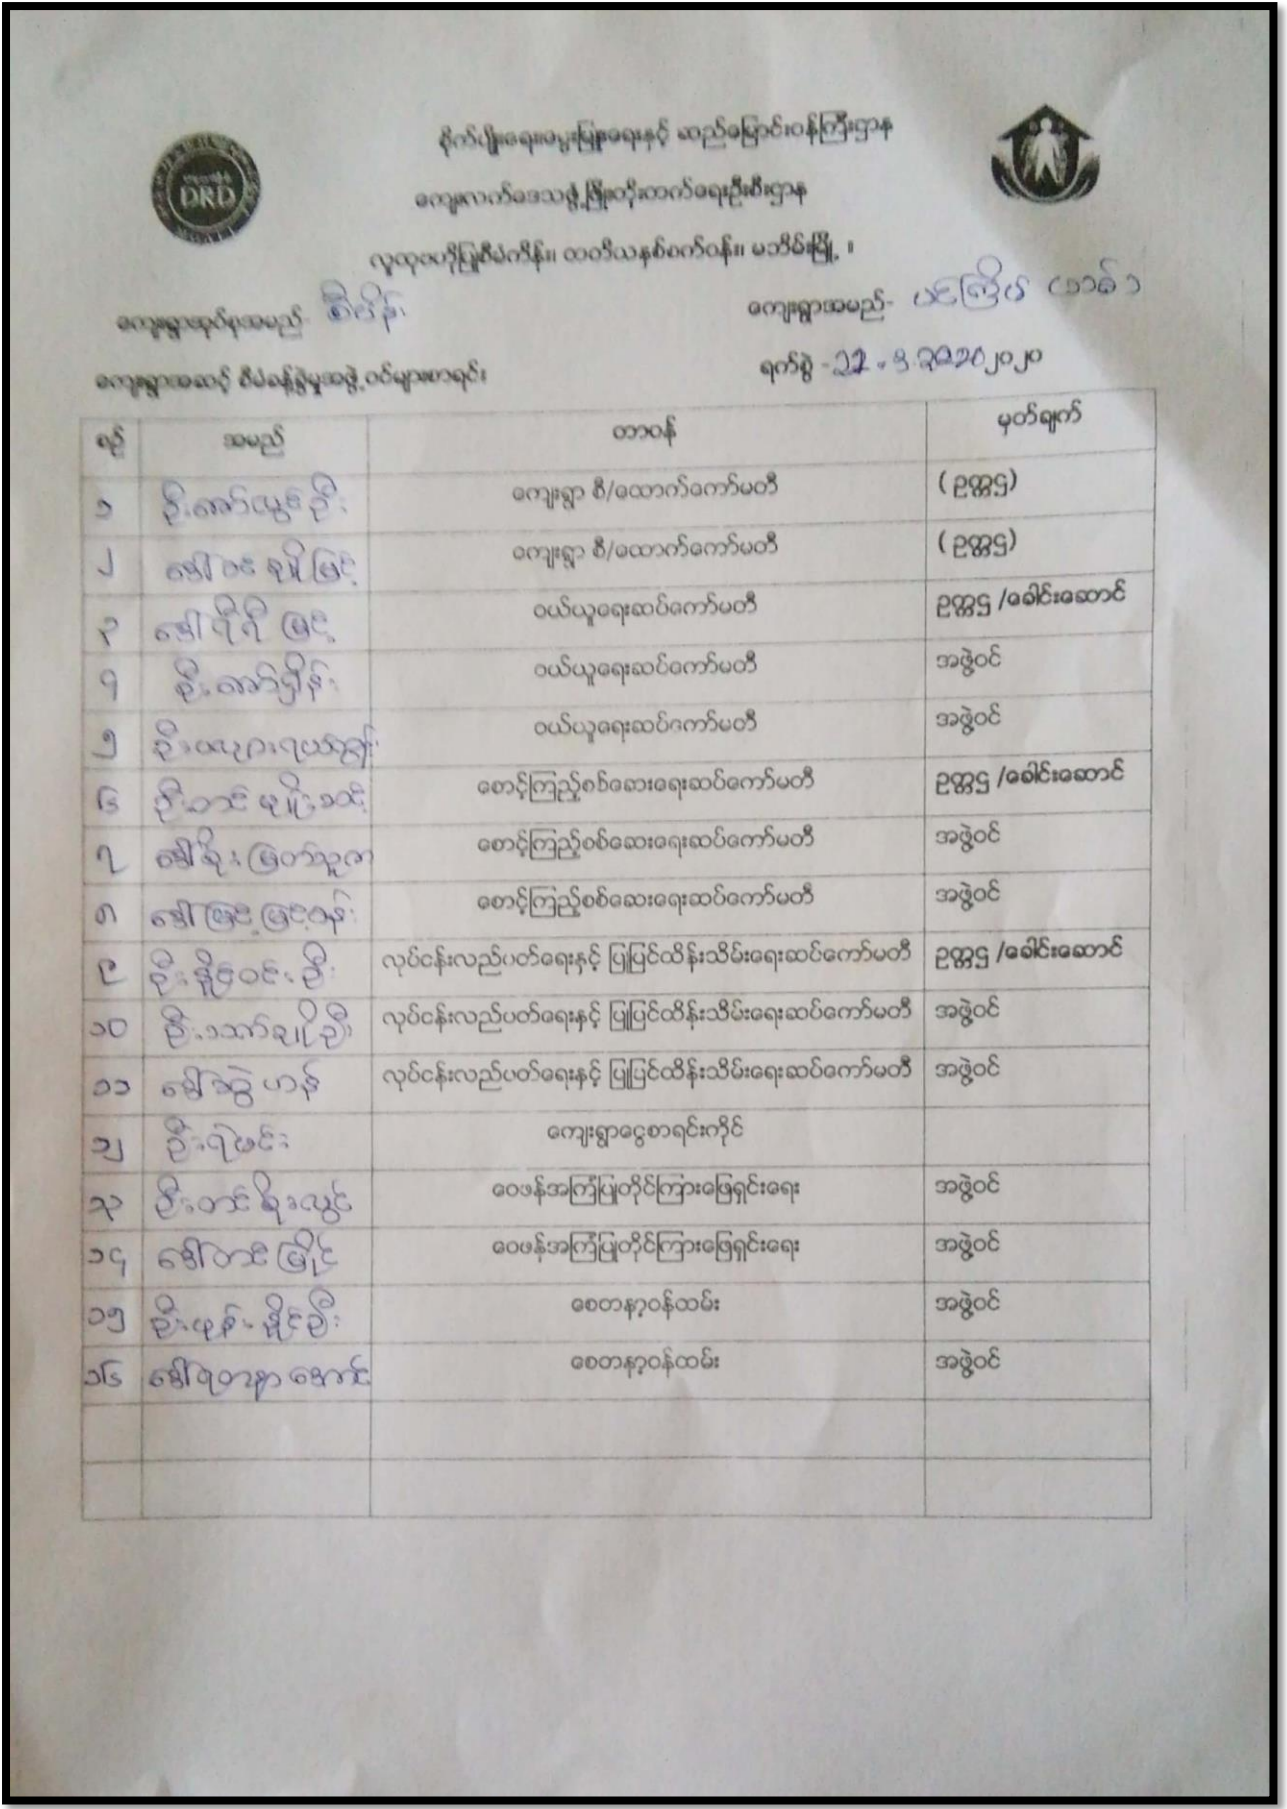 စိုက်ပျိုးရေး၊မွေးမြူရေးနှင့် ဆည်မြောင်းဝန်ကြီးဌာန
DRD
ကျေးလက်ဒေသဖွံ့ဖြိုးတိုးတက်ရေးဦးစီးဌာန
လူထုဗဟိုပြုစီမံကိန်း၊ တတိယနှစ်စက်ဝန်း၊ မဘိမ်းမြို့ ။
ကျေးရွာအုပ်စုအမည်-
ကျေးရွာအမည်-
ကျေးရွာအဆင့် စီမံခန့်ခွဲမှုအဖွဲ့ဝင်များစာရင်း
ရက်စွဲ - ၂၀၂၀
စဉ် အမည် တာဝန် မှတ်ချက်
၁ ဦးအော်လွင်ဦး ကျေးရွာ စီ/ထောက်ကော်မတီ ( ဥက္ကဌ)
၂ ဒေါ်ဝင်းချိုမြင့် ကျေးရွာ စီ/ထောက်ကော်မတီ ( ဥက္ကဌ)
၃ ဒေါ်ရီရီမြင့် ဝယ်ယူရေးဆပ်ကော်မတီ ဥက္ကဌ /ခေါင်းဆောင်
၄ ဦးအော်ရှိန်း ဝယ်ယူရေးဆပ်ကော်မတီ အဖွဲ့ဝင်
၅ ဝယ်ယူရေးဆပ်ကော်မတီ အဖွဲ့ဝင်
၆ စောင့်ကြည့်စစ်ဆေးရေးဆပ်ကော်မတီ ဥက္ကဌ /ခေါင်းဆောင်
၇ ဒေါ်စိုးမြတ်သူဇာ စောင့်ကြည့်စစ်ဆေးရေးဆပ်ကော်မတီ အဖွဲ့ဝင်
၈ ဒေါ်မြင့်မြင့်ဝန်း စောင့်ကြည့်စစ်ဆေးရေးဆပ်ကော်မတီ အဖွဲ့ဝင်
၉ ဦးနိုင်ဝင်းဦး လုပ်ငန်းလည်ပတ်ရေးနှင့် ပြုပြင်ထိန်းသိမ်းရေးဆပ်ကော်မတီ ဥက္ကဌ /ခေါင်းဆောင်
၁၀ ဦးသော်ချိုဦး လုပ်ငန်းလည်ပတ်ရေးနှင့် ပြုပြင်ထိန်းသိမ်းရေးဆပ်ကော်မတီ အဖွဲ့ဝင်
၁၁ လုပ်ငန်းလည်ပတ်ရေးနှင့် ပြုပြင်ထိန်းသိမ်းရေးဆပ်ကော်မတီ အဖွဲ့ဝင်
၁၂ ဦးရဲမင်း ကျေးရွာငွေစာရင်းကိုင်
၁၃ ဦးတင်စိုးလွင် ဝေဖန်အကြံပြုတိုင်ကြားဖြေရှင်းရေး အဖွဲ့ဝင်
၁၄ ဒေါ်တင်မြိုင် ဝေဖန်အကြံပြုတိုင်ကြားဖြေရှင်းရေး အဖွဲ့ဝင်
၁၅ ဦးဇုန်းနိုင်ဦး စေတနာ့ဝန်ထမ်း အဖွဲ့ဝင်
၁၆ ဒေါ်ရတနာအောင် စေတနာ့ဝန်ထမ်း အဖွဲ့ဝင်